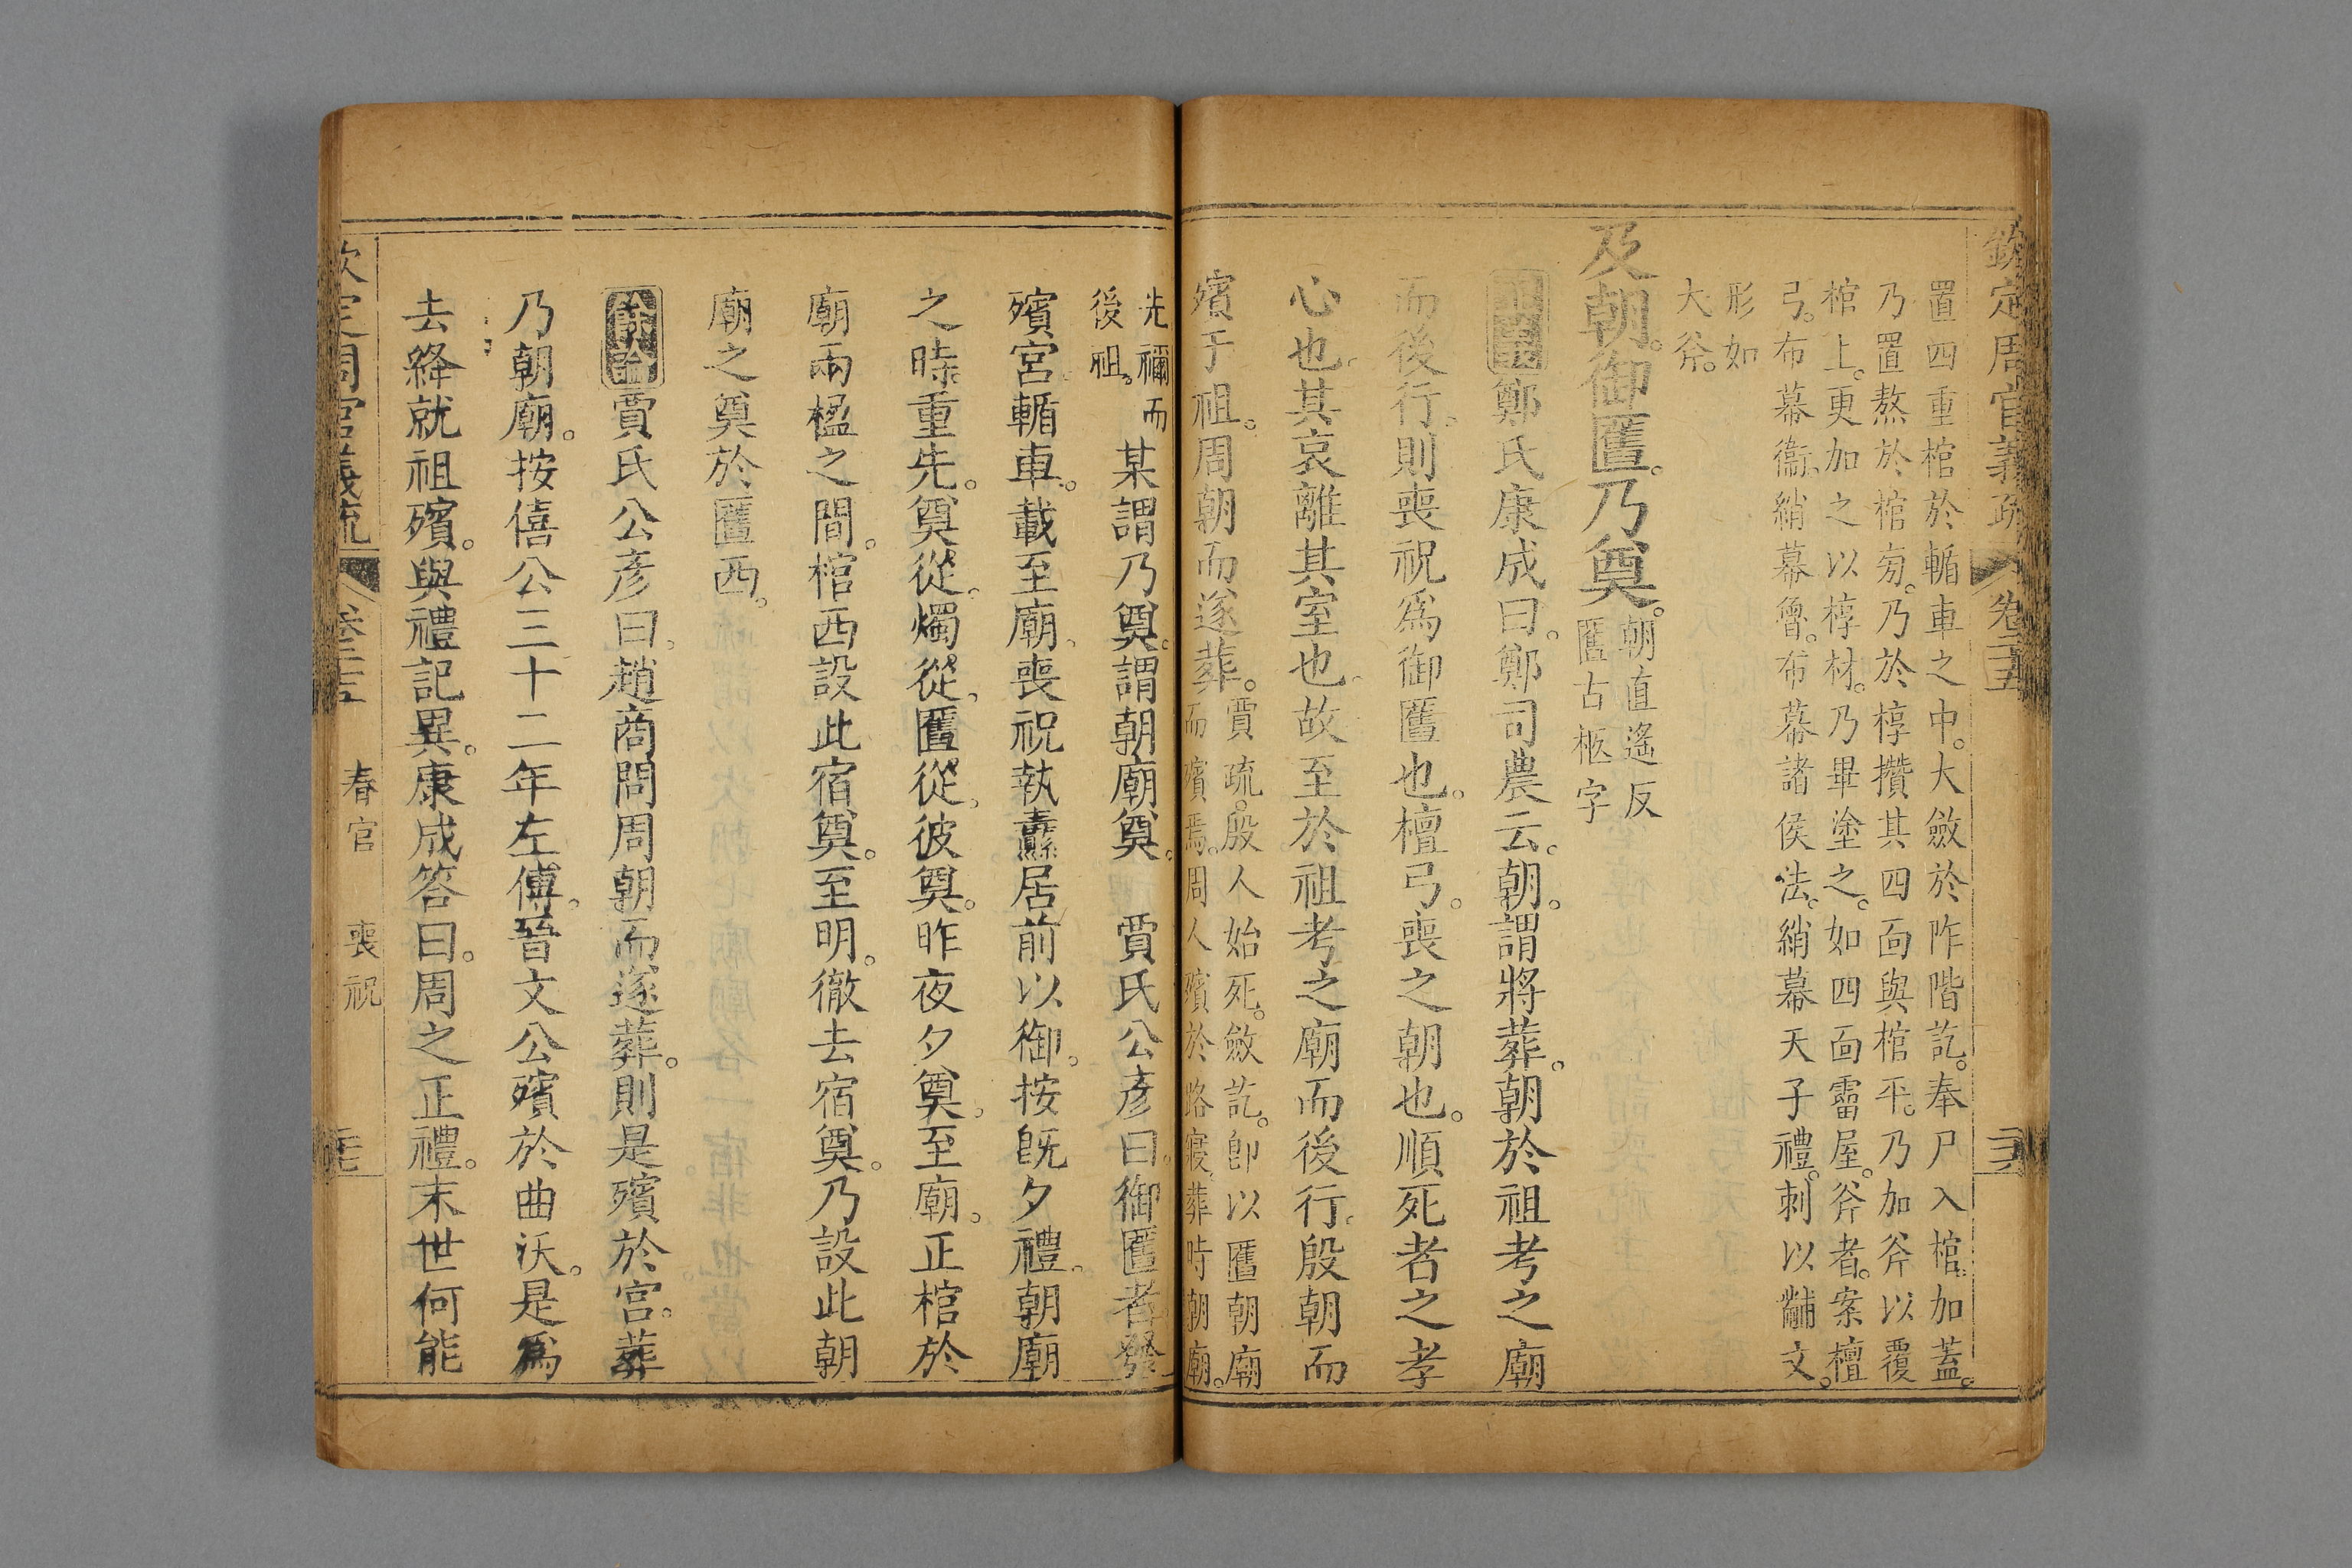 欽定周官義疏 卷二十五
置四重棺於輴車之中。大斂於阼階訖。奉尸入棺。加蓋。
乃置熬於棺旁。乃於椁攢其四面與棺平。乃加斧以覆
棺上。更加之以椁材。乃畢塗之。如四面霤屋。斧者。案檀
弓。布幕衞。綃幕魯。布幕諸侯法。綃幕天子禮。刺以黼文。
形如
大斧。
及朝。御匶。乃奠。朝直遙反
匶古柩字
鄭氏康成曰。鄭司農云。朝。謂將葬。朝於祖考之廟
而後行。則喪祝爲御匶也。檀弓。喪之朝也。順死者之孝
心也。其哀離其室也。故至於祖考之廟而後行。殷朝而
殯于祖。周朝而遂葬。賈疏。殷人始死。斂訖。卽以匶朝廟
而殯焉。周人殯於路寢。葬時朝廟。
先禰而
後祖。某謂乃奠。謂朝廟奠。 賈氏公彥曰。御匶者。發
殯宮。輴車。載至廟。喪祝執纛居前以御。按旣夕禮。朝廟
之時。重先。奠從。燭從。匶從。彼奠。昨夜夕奠。至廟。正棺於
廟兩楹之間。棺西設此宿奠。至明。徹去宿奠。乃設此朝
廟之奠於匶西。
餘論賈氏公彥曰。趙商問周朝而遂葬。則是殯於宮。葬
乃朝廟。按僖公三十二年左傳。晉文公殯於曲沃。是爲
去絳就祖殯。與禮記異。康成答曰。周之正禮。末世何能
欽定周官義疏 卷二十五 春官 喪祝